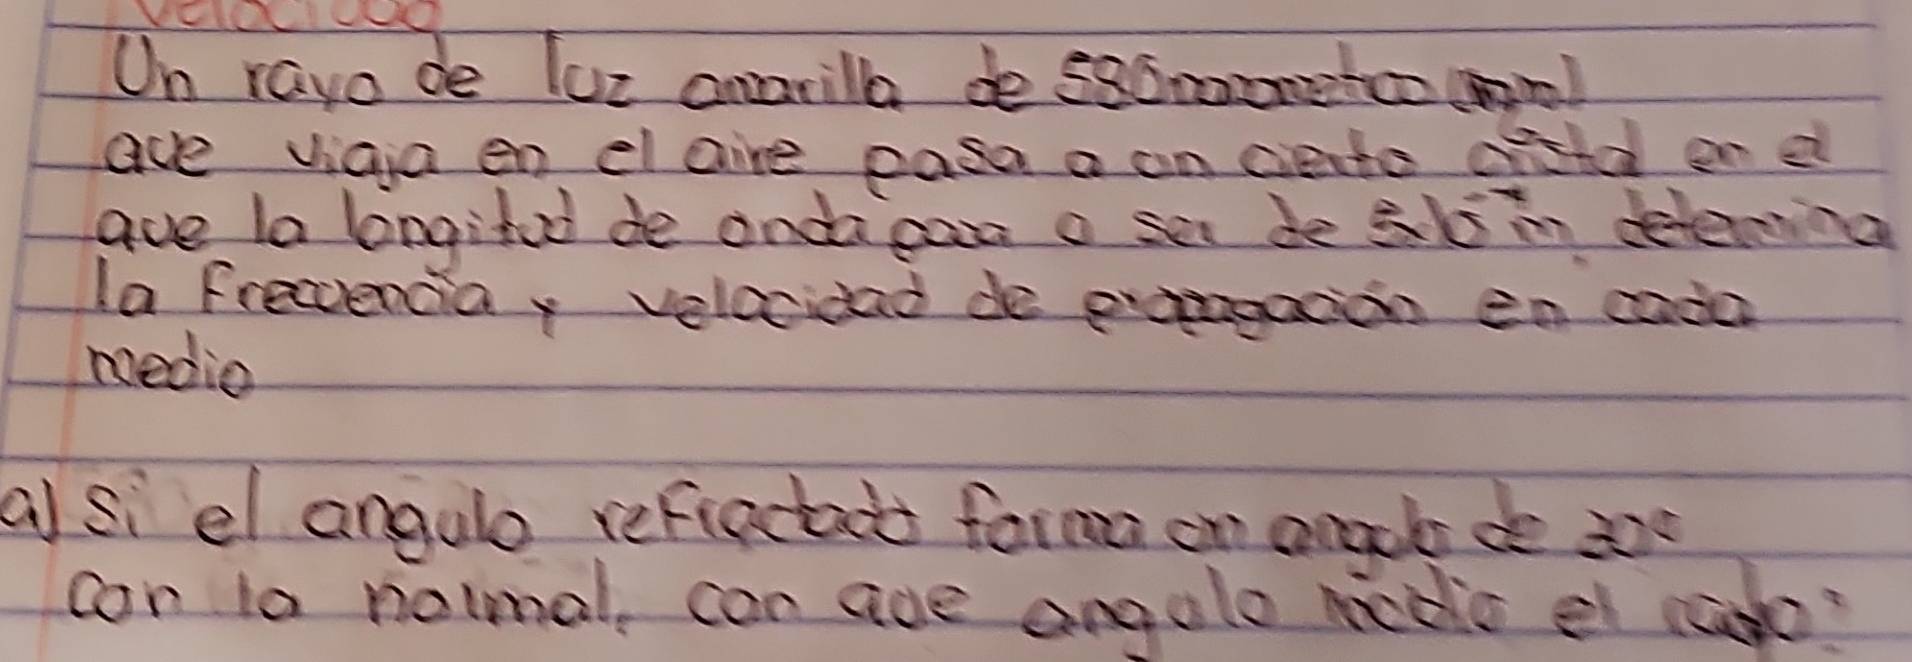 Velocidad
Un rayo de luz amarilla de 580 nanometros (nm)
que viaja en el aire pasa a un cierto cristal en el
que la longitud de onda pasa a ser de determina
la frecuencia y velocidad de propagación en cada
medio
a) Si el angulo refractado forma un angulo de 30°
con la normal. con que angulo incidio el rayo?